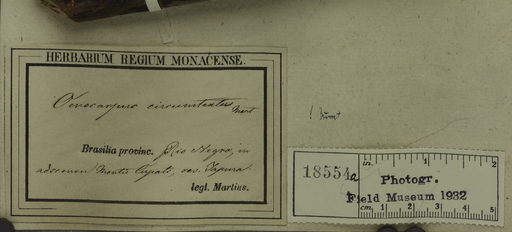 HERBARIUM REGIUM MONACENSE.
Oenocarpus circumtextus Mart
Brasilia provinc. Rio Negro, in
Montis Cupati, Japura
legt. Martius.
! Burret
18554a
in. 1 2
Photogr.
Field Museum 1932
cm. 1 2 3 4 5